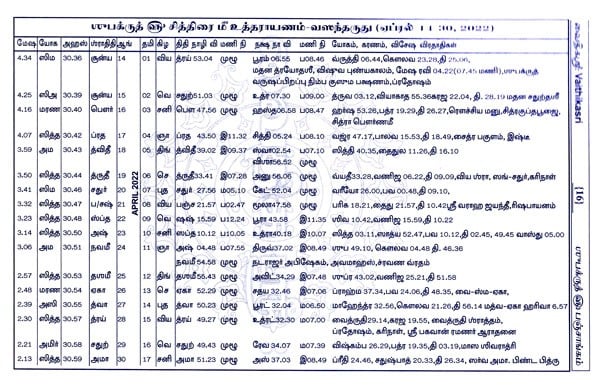 ஸுபக்ருத் ௵ சித்திரை மீ உத்தராயணம்-வஸந்தருது (ஏப்ரல் 14-30, 2022)
மேஷ யோக அஹஸ் ஸ்ராதிதி ஆங் தமி கிழ திதி நாழி வி மணி நி நக்ஷ நா வி மணி நி யோகம், கரணம், விசேஷ விரதாதிகள்
4.34 ஸிம 30.36 சூன்ய 14 01 விய த்ரய 53.04 முழு பூரம் 06.55 ப08.46 வ்ருத்தி 06.44,கௌலவ 23.28,தி 25.06,
மதன த்ரயோதசீ, விஷுவ புண்யகாலம், மேஷ ரவி 04.22(07.45 மணி),ஸுபக்ருத்
வருஷப்பிறப்பு நிம்ப குஸும பக்ஷணம், ப்ரதோஷம்
4.25 ஸிஅ 30.39 சூன்ய 15 02 வெ சதுர்51.03 முழு உத்ர 07.30 ப09.00 த்ருவ 03.12,வியாகாத 55.36கரஜ 22.04, தி. 28.19 மதன சதுர்தசீ
4.16 மரண 30.40 பௌர் 16 03 சனி பௌ 47.56 முழு ஹஸ்த06.58 ப08.47 ஹர்ஷ 53.28,பத்ர 19.29,தி 26.27, ரௌச்சிய மனு, சித்ரகுப்தபூஜை,
சித்ரா பௌர்ணமீ
4.07 ஸித்த 30.42 ப்ரத 17 04 ஞா ப்ரத 43.50 இ11.32 சித்தி 05.24 ப08.10 வஜ்ர 47.17,பாலவ 15.53,தி 18.49,சைத்ர பகுளம், இஷ்டி
3.59 அம 30.43 த்விதீ 18 05 திங் த்விதீ 39.02 இ09.37 ஸ்வா02.54 ப07.10 ஸித்தி 40.35,தைதுல 11.26,தி 16.10
விஸா56.52 முழு
3.50 ஸித்த 30.44 த்ருதீ 19 06 செ த்ருதீ33.41 இ07.28 அனு 56.06 முழு வ்யதீ33.28,வணிஜ 06.22,தி 09.09,விய ஸ்ரா, ஸங்-சதுர்,கரிநாள்
3.41 ஸிம 30.46 சதுர் 20 APRIL 2022 07 புத சதுர் 27.56 ப05.10 கேட் 52.04 முழு வரீயா 26.00,பவ 00.48,தி 09.10,
3.32 ஸித்த 30.47 ப/சஷ் 21 08 விய பஞ்ச 21.57 ப02.47 மூல47.58 முழு பரிக 18.21,தைது 21.57,தி 10.42 ஸ்ரீ வராஹ ஜயந்தீ,ரிஷிபயணம்
3.23 ஸித்த 30.48 ஸப்த 22 09 வெ ஷஷ் 15.59 ப12.24 பூரா 43.58 இ11.35 ஸிவ 10.42,வணிஜ 15.59,தி 10.22
3.14 ஸித்த 30.50 அஷ் 23 10 சனி ஸப் 10.12 ப10.05 உத்ரா40.18 இ10.07 ஸித்த 03.11,ஸாத்ய 52.47,பவ 10.12,தி 02.45, 49.45 வாஸ்து 05.00
3.06 அம 30.51 நவமீ 24 11 ஞா அஷ் 04.48 ப07.55 திருவ37.02 இ08.49 ஸுப 49.10, கௌலவ 04.48 தி. 46.38
நவமீ 54.58 முழு நடராஜர் அபிஷேகம், அவமாஹஸ்,சரவண வ்ரதம்
2.57 ஸித்த 30.53 தஸமீ 25 12 திங் தஸமீ56.43 முழு அவிட்34.29 இ07.48 ஸுப்ர 43.02,வணிஜ 25.21,தி 51.58
2.48 மரண 30.54 ஏகா 26 13 செ ஏகா 52.29 முழு சதய 32.46 இ07.06 ப்ராஹ்ம 37.34,பவ 24.06,தி 48.35, வை-ஸ்ம-ஏகா,
2.39 அஸி 30.55 த்வா 27 14 புத த்வா 50.23 முழு பூரட் 32.04 ப06.50 மாஹேந்த்ர 32.56,கௌலவ 21.26,தி 56.14 மத்வ-ஏகா ஹரிவா 6.57
2.30 ஸித்த 30.57 த்ரய 28 15 விய த்ரய 49.27 முழு உத்ரட்32.30 ம07.00 வைத்ருதி29.14,கரஜ 19.55, வைத்ருதி ஸ்ராத்தம்,
ப்ரதோஷம், கரிநாள், ஸ்ரீ பகவான் ரமணர் ஆராதனை
2.21 அமிர் 30.58 சதுர் 29 16 வெ சதுர் 49.43 முழு ரேவ 34.07 ம07.39 விஷ்கம்ப 26.29,பத்ர 19.35,தி 03.19,மாஸ ஸிவராத்ரி
2.13 ஸித்த 30.59 அமா 30 17 சனி அமா 51.23 முழு அஸ் 37.03 இ08.49 ப்ரீதி 24.46, சதுஷ்பாத் 20.33,தி 26.34, ஸர்வ அமா. பிண்ட பித்ரு
வைத்திகஸ்ரீ Vaithikasri
[16]
ஸுபக்ருது ௵ பஞ்சாங்கம்